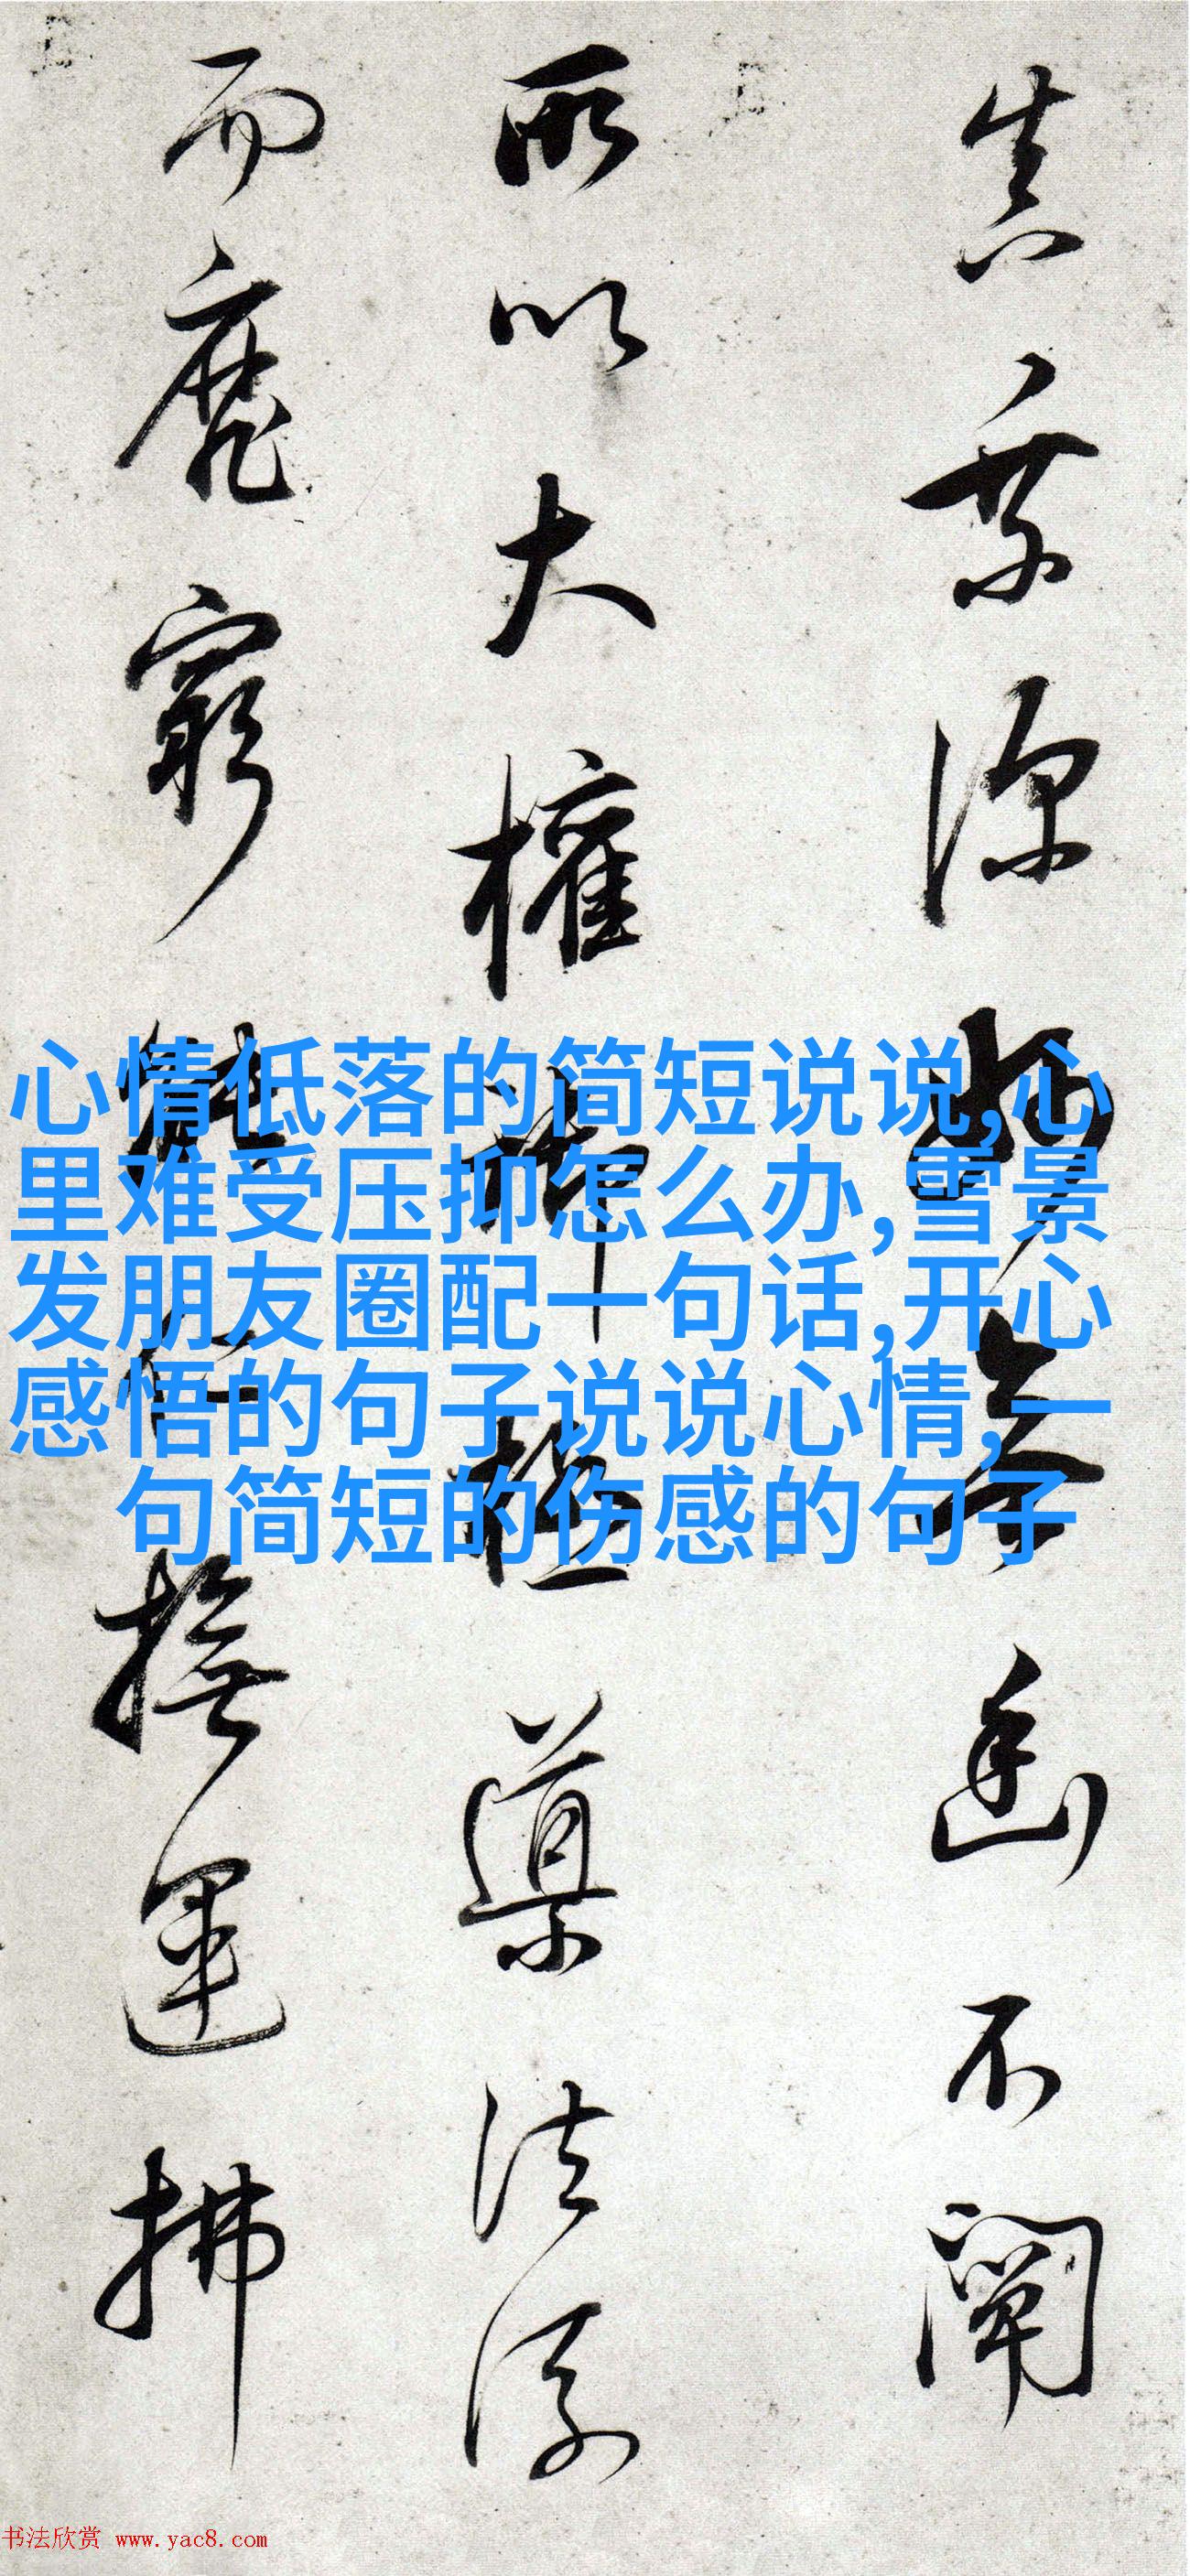 真慈深
幽不闡
所以大權
導法流
而靡窮
撫運拂
心情低落的简短说说,心
里难受压抑怎么办,雪景
发朋友圈配一句话,开心
感悟的句子说说心情,一
句简短的伤感的句子
书法欣赏 www.yac8.com